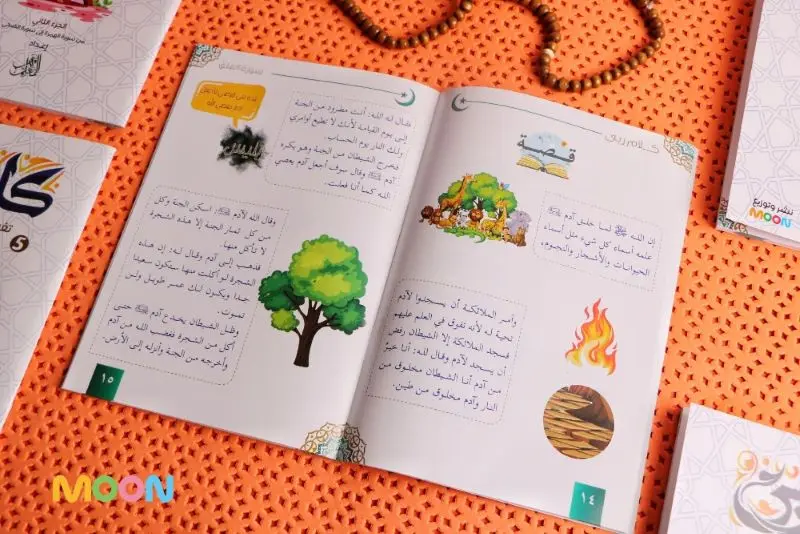 كلام ربي
قصة
إن الله ﷻ لما خلق آدم ﷺ
علمه أسماء كل شيء مثل أسماء
الحيوانات والأشجار والنجوم.
وأمر الملائكة أن يسجدوا لآدم
تحية له لأنه تفوق في العلم عليهم
فسجد الملائكة إلا الشيطان رفض
أن يسجد لآدم وقال لله: أنا خيرٌ
من آدم أنا الشيطان مخلوق من
النار وآدم مخلوق من طين.
١٤
فقال له الله: أنت مطرود من الجنة
إلى يوم القيامة لأنك لا تطيع أوامري
ولك النار يوم الحساب.
فخرج الشيطان من الجنة وهو يكره
آدم ﷺ وقال سوف أجعل آدم يعصي
الله كما أنا فعلت.
وقال الله لآدم ﷺ: اسكن الجنة وكل
من كل ثمار الجنة إلا هذه الشجرة
لا تأكل منها.
فذهب إلى آدم وقال له: إن هذه
الشجرة لو أكلت منها ستكون سعيدا
جدا ويكون لك عمر طويل ولن
تموت.
وظل الشيطان يخدع آدم ﷺ حتى
أكل من الشجرة فغضب الله من آدم
وأخرجه من الجنة وأنزله إلى الأرض.
١٥
الجزء الثاني
إعداد
٥
نشر وتوزيع
MOON
MOON